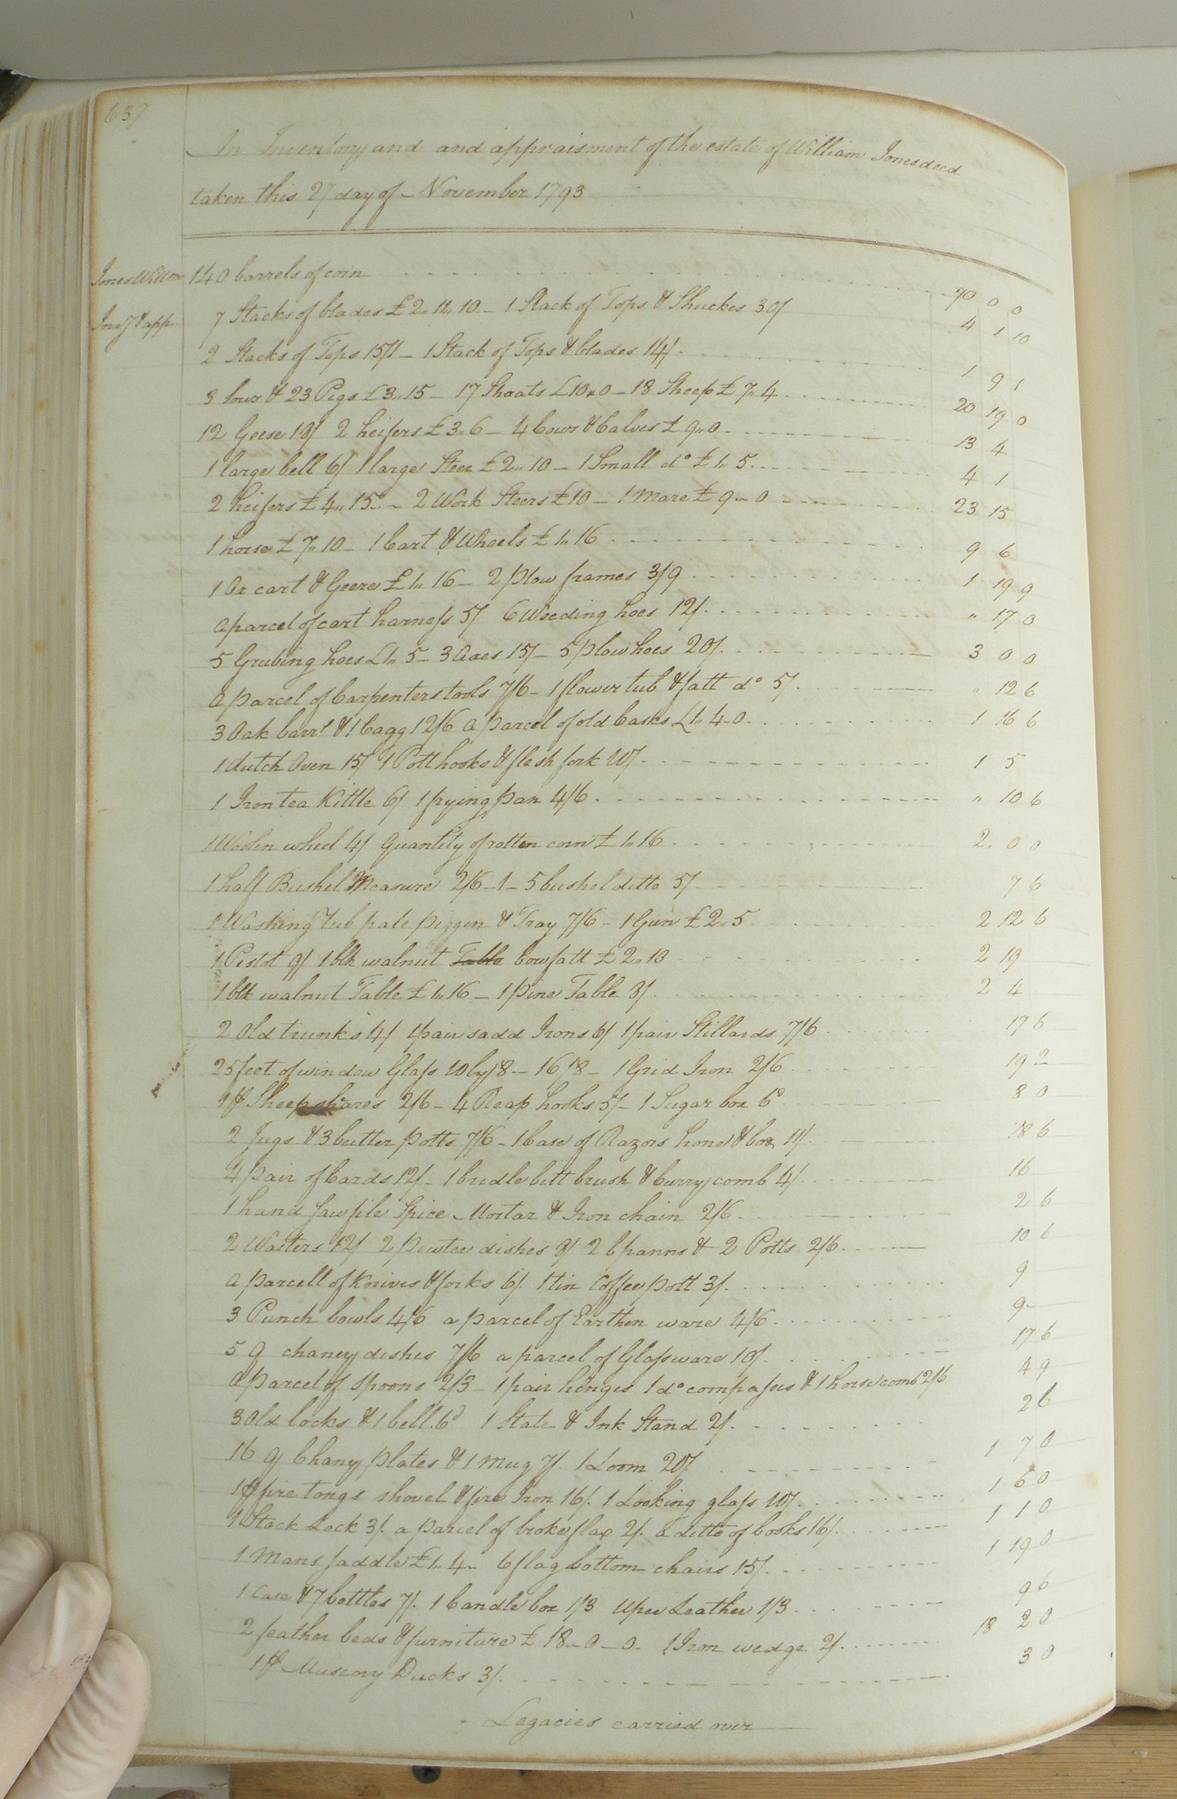 637
An Inventory and and appraisment of the estate of William Jones decd
taken this 27 day of November 1793
Jones Willm
Invy & app
140 barrels of corn 70 0 0
7 Stacks of blades £2.11.10 - 1 Stack of Tops & Shuckes 30/ 4 1 10
2 Stacks of Tops 15/1 - 1 Stack of Tops & blades 14/. 1 9 1
3 Sows & 23 Pigs £3.15 - 17 Shoats £10.0 - 18 Sheep £7.4 20 19 0
12 Geese 18/ 2 heifers £3.6 - 4 Cows & Calves £9.0 13 4
1 large bell 6/ 1 large Steer £2.10 - 1 Small do £1.5 4 1
2 heifers £4.15 - 2 Work Steers £10 - 1 Mare £9.0 23 15
1 horse £7.10 - 1 Cart & Wheels £1.16 9 6
1 Ox cart & Geere £1.16 - 2 plow frames 3/9 1 19 9
a parcel of cart harness 5/ 6 Weeding hoes 12/. " 17 0
5 Grubing hoes £1.5 - 3 Axes 15/ - 5 plow hoes 20/. 3 0 0
a parcel of Carpenters tools 7/6 - 1 flower tub & fatt do 5/. " 12 6
3 Oak barrs & 1 Cagg 12/6 a parcel of old Casks £1.4.0 1 16 6
1 dutch Oven 15/ 1 Pott hooks & flesh fork 10/. 1 5
1 Iron tea Kittle 6/ 1 frying pan 4/6 " 10 6
1 Woolen wheel 4/ quantity of rotten corn £1.16 2. 0 0
1 half Bushel Measure 2/6 - 1 - 5 bushel ditto 5/ 7 6
1 Washing Tub pale piggin & Tray 7/6 - 1 Gun £2.5 2 12 6
1 Pistol 9/ 1 blk walnut Table bowfatt £2.10 2 19
1 blk walnut Table £1.16 - 1 pine Table 8/. 2 4
2 Old trunks 4/ 1 pair sadd Irons 6/ 1 pair Stillards 7/6 17 6
25 feet of window Glass 10 by 8 - 16/8 - 1 Grid Iron 2/6 19 2
1 pr Sheep shares 2/6 - 4 Reap hooks 5/ - 1 Sugar box 6d 8 0
2 Jugs & 3 butter potts 7/6 - 1 Case of Razors hone & box 11/. 18 6
4 pair of Cards 12/ - 1 bridle bitt brush & Curry comb 4/ 16
1 hand saw file Spice Mortar & Iron chain 2/6 2 6
2 Waiters 12/ 2 pewter dishes 9/ 2 Spanns & 2 Potts 2/6 10 6
a parcell of Knives & forks 6/. 1 tin Coffee pott 3/. 9
3 Punch bowls 4/6 a parcel of Earthen ware 4/6 9
5 9 chaney dishes 7/6 a parcel of Glassware 10/. 17 6
a parcel of Spoons 2/3 1 pair hinges 1 do compasses & 1 horse comb 2/6 4 9
3 Old locks & 1 bell 6d 1 Slate & Ink Stand 2/. 2 6
16 9 Chany plates & 1 Mug 7/. 1 Loom 20/. 1 7 0
1 pr fire tongs shovel & fire Iron 16/. 1 Looking glass 10/. 1 6 0
1 Stock Lock 3/. a parcel of broke flax 2/. a ditto of books 16/. 1 1 0
1 Mans saddle £1.4 6 flag bottom chairs 15/. 1 19 0
1 Case & 7 bottles 7/. 1 Candle box 1/3 Uper Leather 1/3 9 6
2 feather beds & furniture £18-0-0. 1 Iron wedge 2/. 18 2 0
1 pr Muscovy Ducks 3/. 3 0
Legacies carried over